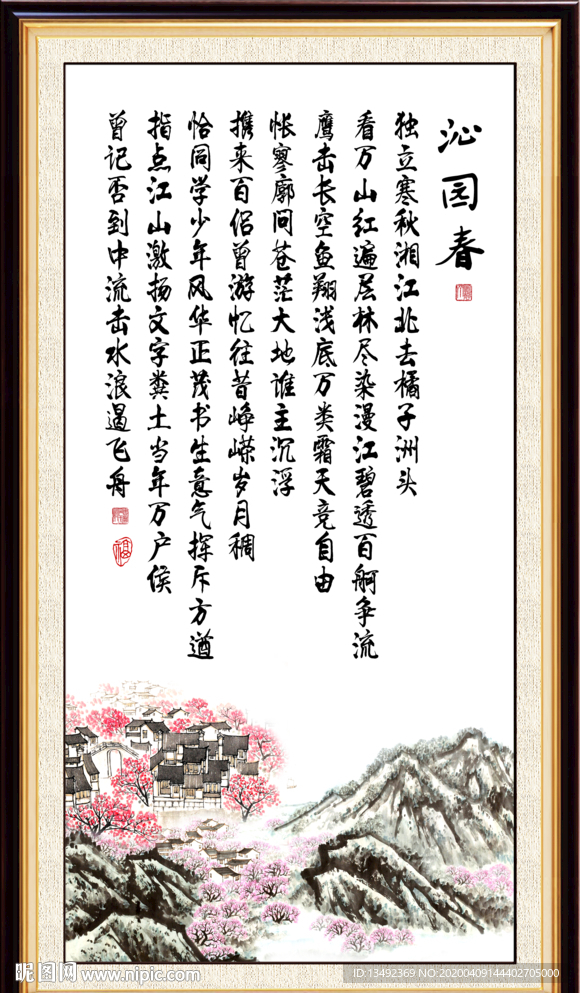 沁园春
独立寒秋湘江北去橘子洲头
看万山红遍层林尽染漫江碧透百舸争流
鹰击长空鱼翔浅底万类霜天竞自由
怅寥廓问苍茫大地谁主沉浮
携来百侣曾游忆往昔峥嵘岁月稠
恰同学少年风华正茂书生意气挥斥方遒
指点江山激扬文字粪土当年万户侯
曾记否到中流击水浪遏飞舟
福
昵图网 www.nipic.com
ID:13492369 NO:20200409144402705000